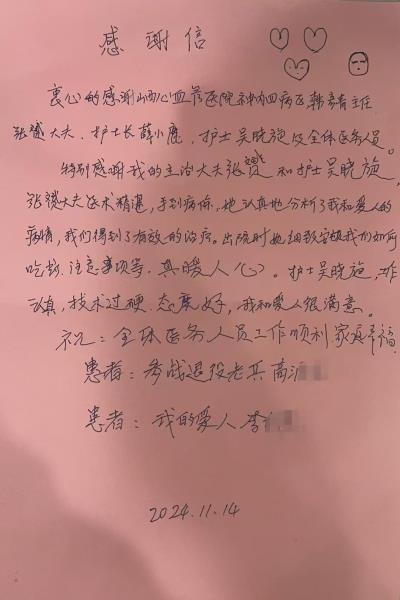 感谢信
衷心的感谢山西心血管医院神内四病区韩彦青主任
张赟大夫、护士长薛小鹿、护士吴晓施及全体医务人员。
特别感谢我的主治大夫张赟和护士吴晓施,
张赟大夫医术精湛,手到病除,她认真地分析了我和爱人的
病情,我们得到了有效的治疗。出院时她细致安顿我们如何
吃药、注意事项等,真暖人心。护士吴晓施,工作
认真,技术过硬,态度好,我和爱人很满意。
祝:全体医务人员工作顺利家庭幸福
患者:参战退役老兵高
患者:我的爱人李
2024.11.14